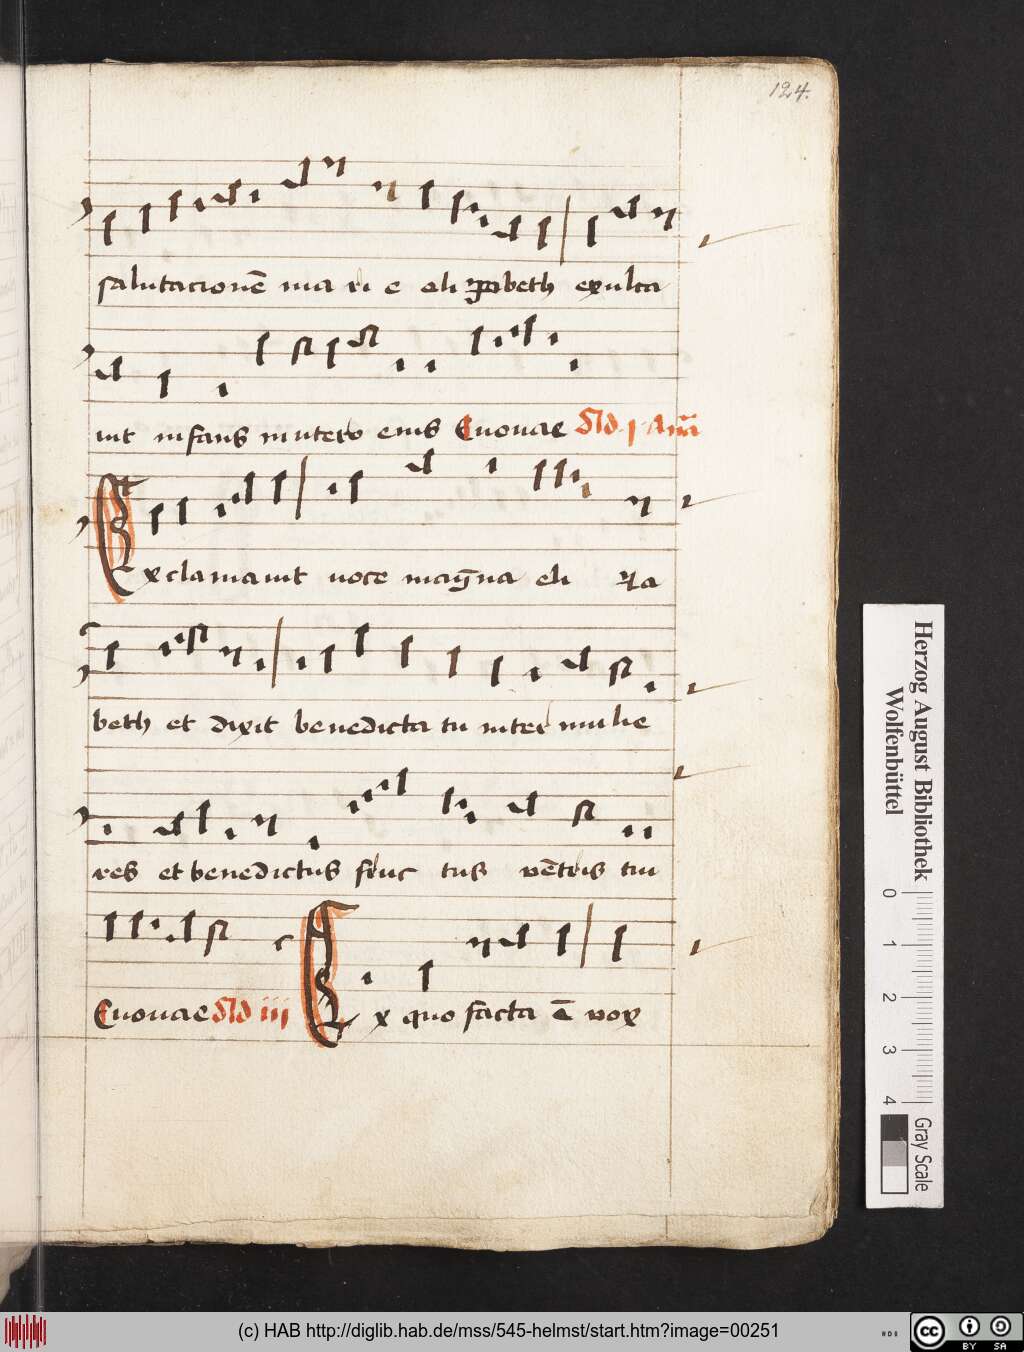 124.
salutacionē ma ri e eli zabeth exulta
uit infans in utero eius Euouae p̄s
Exclamauit uoce mag̅na eli za
beth et dixit benedicta tu inter mulie
res et benedictus fruc tus vētris tui
Euouae iij Ex quo facta ē vox
Herzog August Bibliothek
Wolfenbüttel
0 1 2 3 4
Gray Scale
(c) HAB http://diglib.hab.de/mss/545-helmst/start.htm?image=00251
cc BY SA